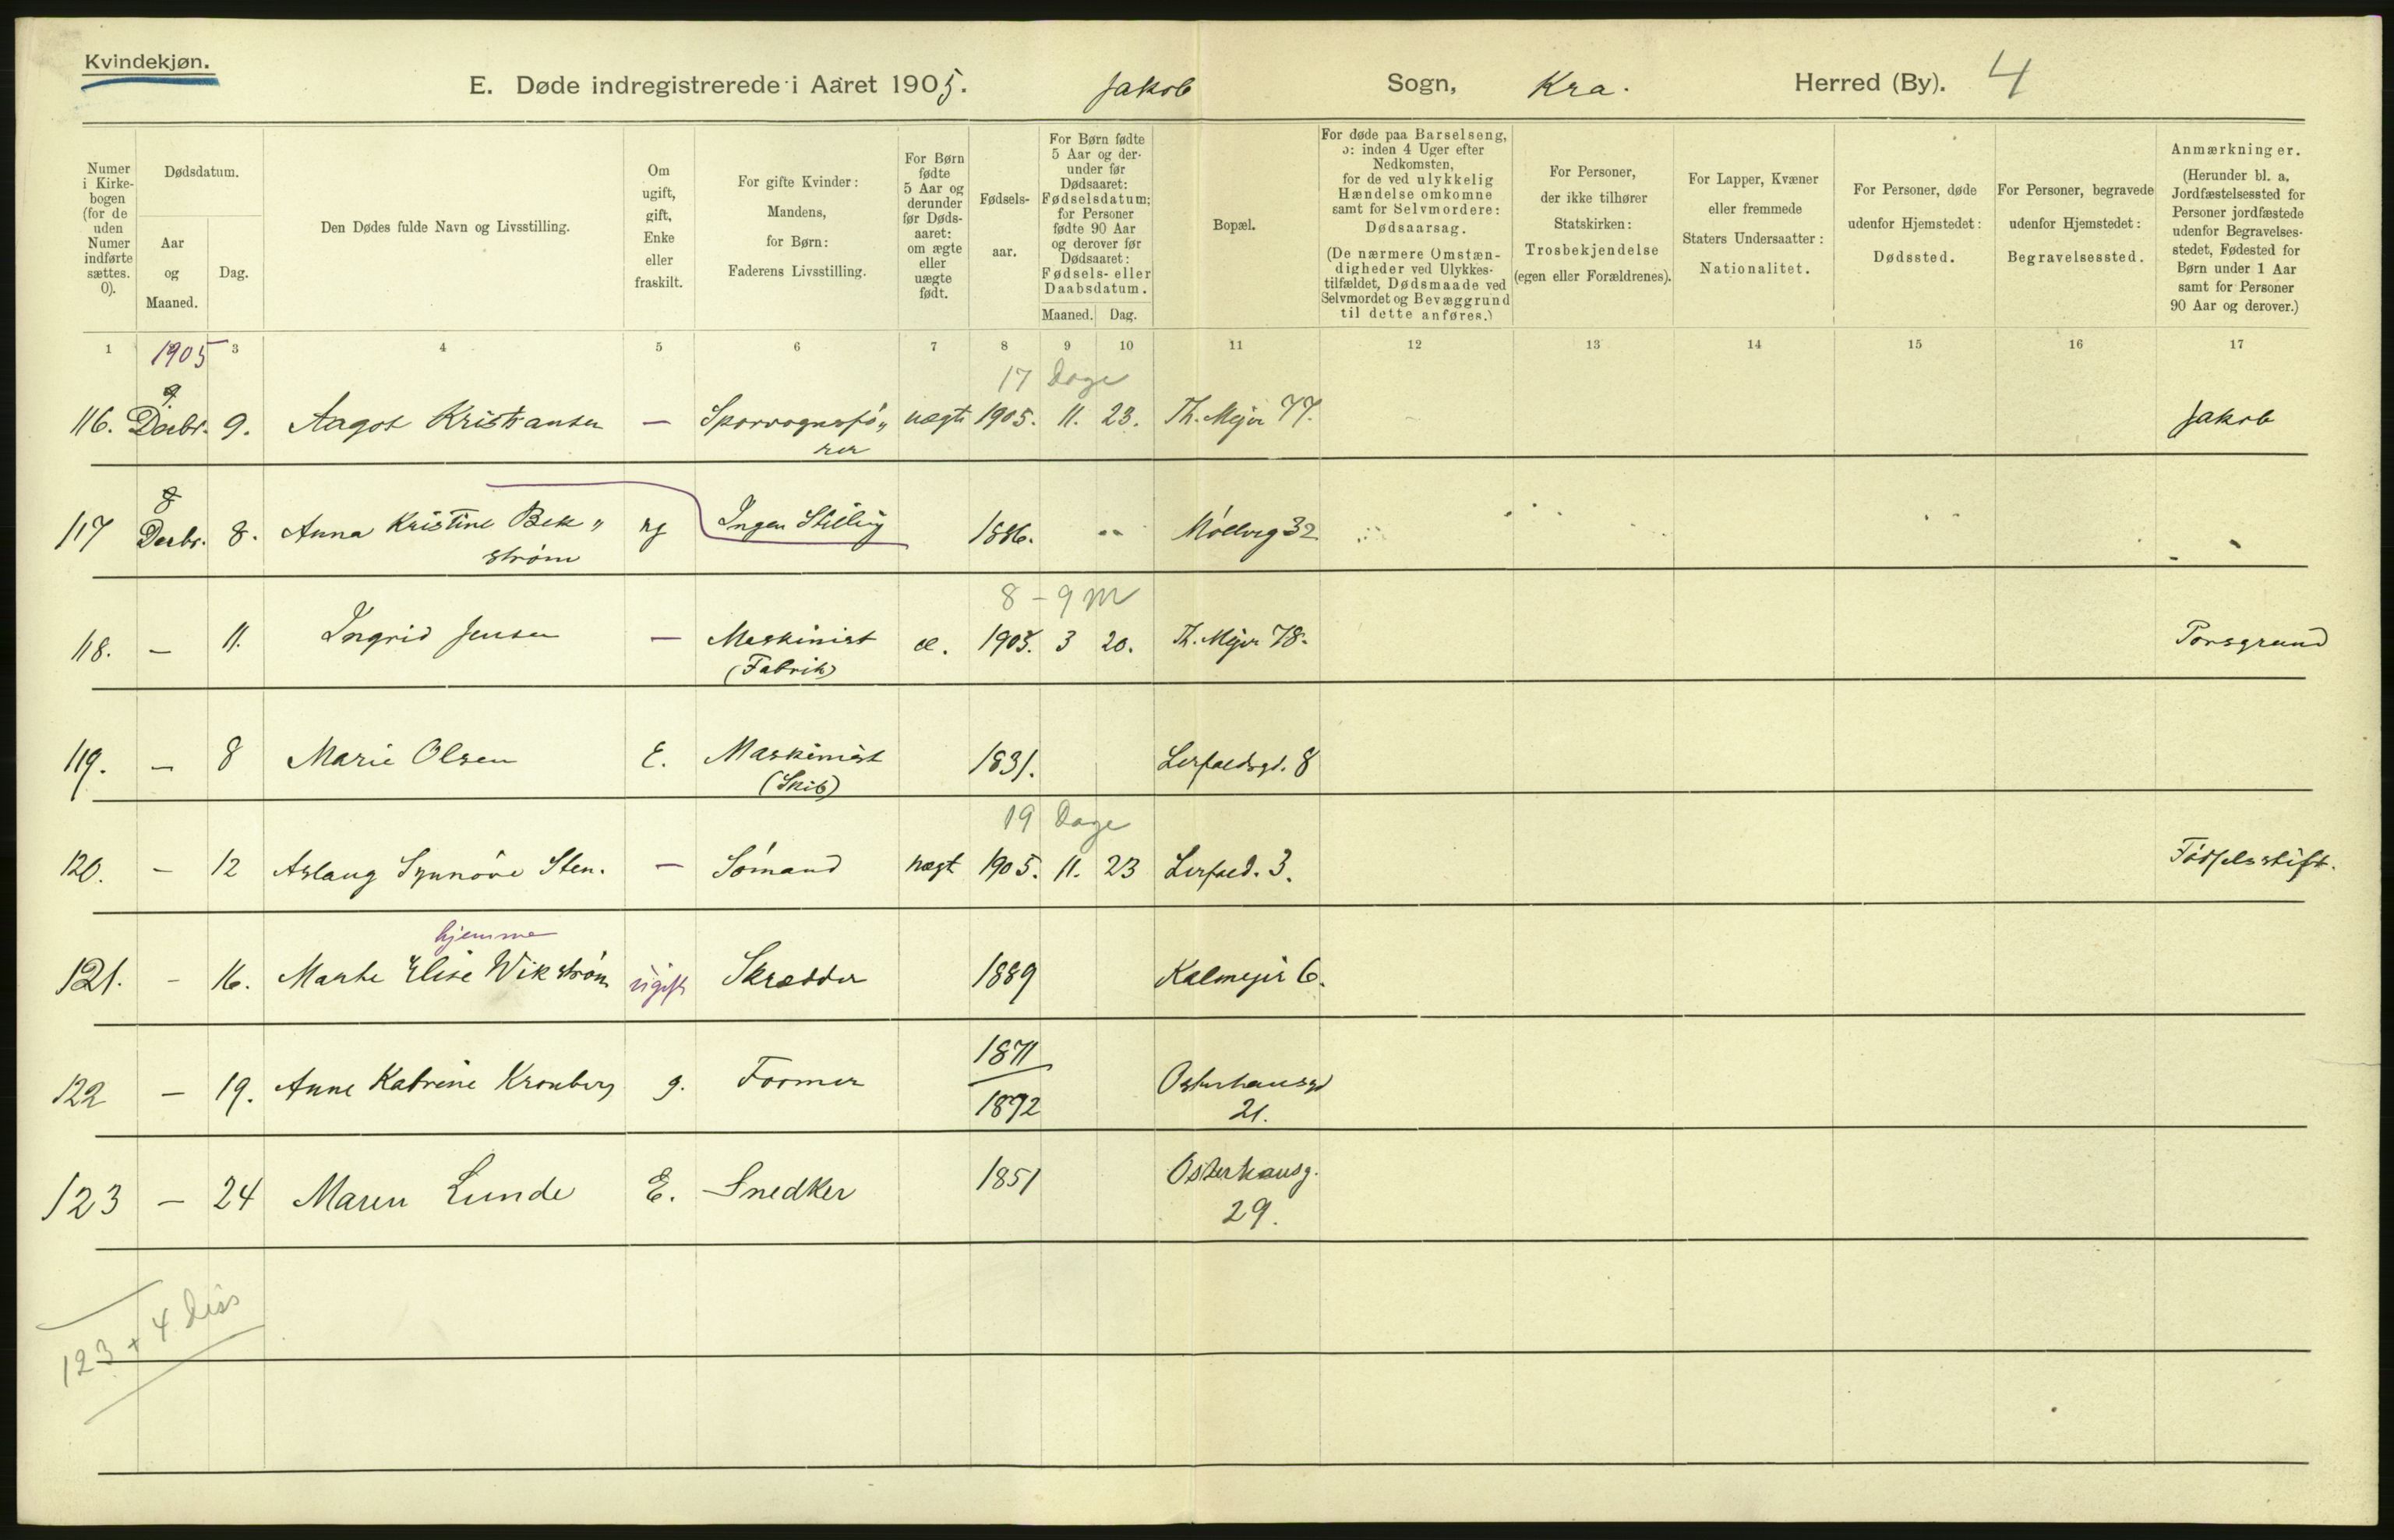 Kvindekjøn.
E. Døde indregistrerede i Aaret 1905. Jakob Sogn, Kra. Herred (By). 4
Numer i Kirkebogen (for de uden Numer indførte sættes. 0).
Dødsdatum.
Aar og Maaned.
Dag.
Den Dødes fulde Navn og Livsstilling.
Om ugift, gift, Enke eller fraskilt.
For gifte Kvinder: Mandens, for Børn: Faderens Livsstilling.
For Børn fødte 5 Aar og derunder før Dødsaaret: om ægte eller uægte født.
Fødselsaar.
For Børn fødte 5 Aar og derunder før Dødsaaret: Fødselsdatum; for Personer fødte 90 Aar og derover før Dødsaaret: Fødsels- eller Daabsdatum.
Maaned. Dag.
Bopæl.
For døde paa Barselseng, ɔ: inden 4 Uger efter Nedkomsten, for de ved ulykkelig Hændelse omkomne samt for Selvmordere: Dødsaarsag.
(De nærmere Omstændigheder ved Ulykkestilfældet, Dødsmaade ved Selvmordet og Bevæggrund til dette anføres.)
For Personer, der ikke tilhører Statskirken: Trosbekjendelse (egen eller Forældrenes).
For Lapper, Kvæner eller fremmede Staters Undersaatter: Nationalitet.
For Personer, døde udenfor Hjemstedet: Dødssted.
For Personer, begravede udenfor Hjemstedet: Begravelsessted.
Anmærkninger.
(Herunder bl. a. Jordfæstelsessted for Personer jordfæstede udenfor Begravelsesstedet, Fødested for Børn under 1 Aar samt for Personer 90 Aar og derover.)
1 1905 3 4 5 6 7 8 9 10 11 12 13 14 15 16 17
9 17 Dage
116. Decbr. 9. Aagot Kristiansen — Sporvognsfø„ uægte 1905. 11. 23. Th. Mejer 77. Jakob
rer
8
117 Decbr. 8. Anna Kristine Bek„ ug Ingen Stilling 1886. Møllerg 32
strøm
8 - 9 M
118. — 11. Ingrid Jensen — Maskinist æ. 1905. 3 20. Th. Mejer 78. Porsgrund
(Fabrik)
119. — 8 Marie Olsen E. Maskinist 1831. Lerfaldsgd. 8
(Skib)
19 Dage
120. — 12 Aslaug Synnöve Sten. — Sömand uægt 1905. 11. 23 Lerfald. 3. Fødselsstift.
hjemme
121. - 16. Marthe Elise Wikström ugift Skrædder 1889 Kalmejer 6.
1871
122 — 19. Anne Katrine Kronberg g. Former 1872 Osterhausgd
21.
123 — 24 Maren Lunde E. Snedker 1851 Osterhausg.
29.
123 + 4 diss